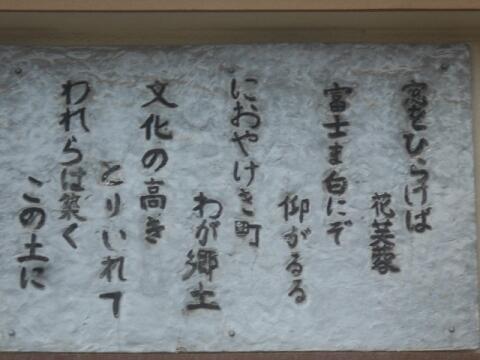 窓をひらけば
花芙蓉
富士ま白にぞ
仰がるる
におやけき町
わが郷土
文化の高き
とりいれて
われらは築く
この土に